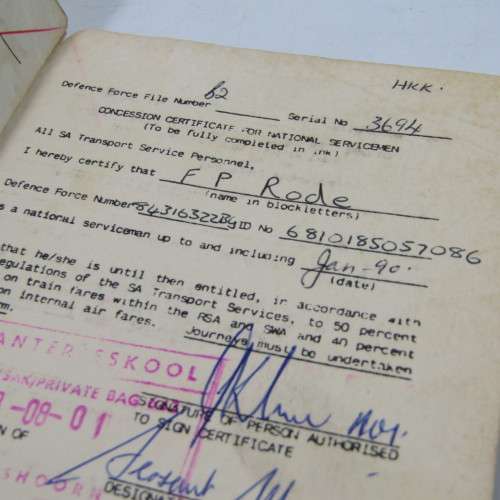 HKK.
Defence Force File Number B2
Serial No 3694
CONCESSION CERTIFICATE FOR NATIONAL SERVICEMEN
(To be fully completed in ink)
All SA Transport Service Personnel,
I hereby certify that F P Rode
(name in blockletters)
Defence Force Number 84316322BG ID No 6810185057086
s a national serviceman up to and including Jan-90.
(date)
that he/she is until then entitled, in accordance with
egulations of the SA Transport Services, to 50 percent
on train fares within the RSA and SWA and 40 percent
on internal air fares. Journeys must be undertaken
rm.
ANTER SSKOOL
SAK/PRIVATE BAG
-08-01
SIGNATURE OF PERSON AUTHORISED
TO SIGN CERTIFICATE
N OF
SHOORN
DESIGNA